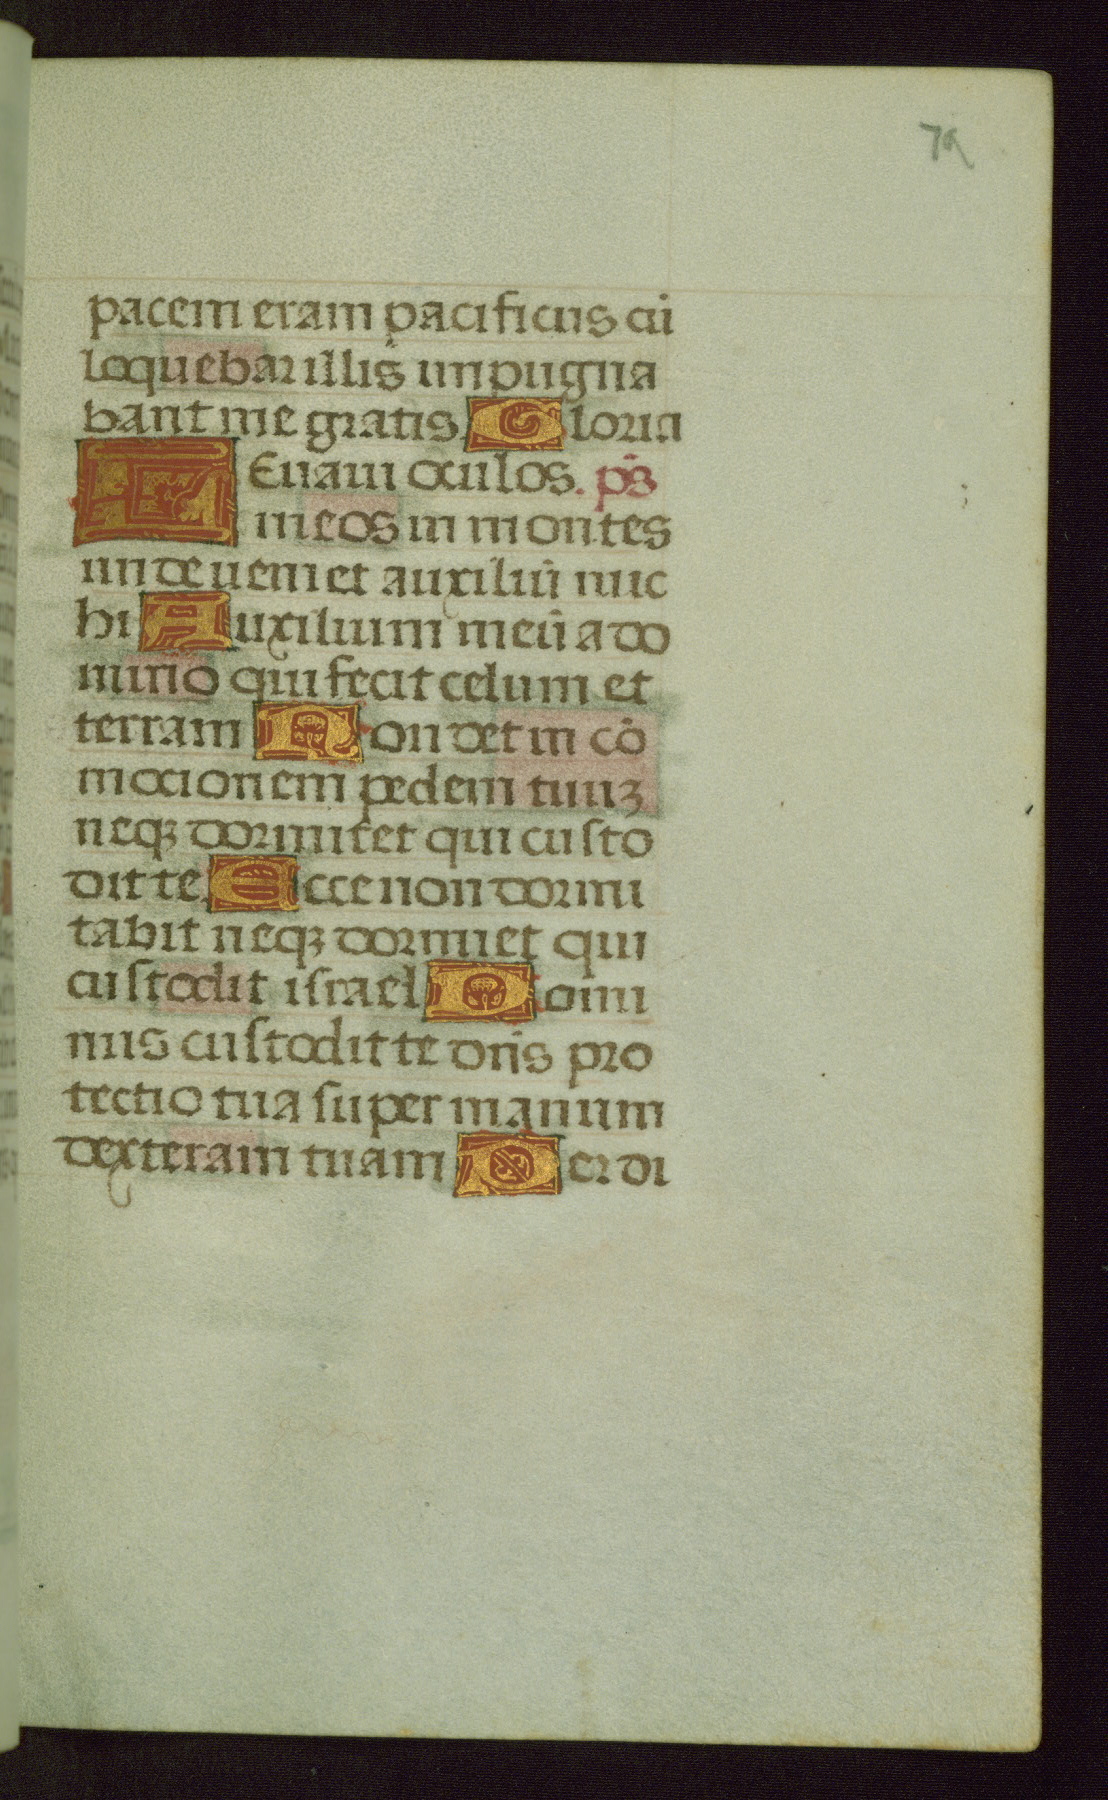 79
pacem eram pacificus cū
loquebar illis inpugna
bant me gratis. Gloria
LEuaui oculos. ps̄
meos in montes
unde ueniet auxiliū mic
hi Auxilium meū a do
mino qui fecit celum et
terram Non det in cō
mocionem pedem tuuꝫ
neqꝫ dormitet qui custo
dit te. Ecce non dormi
tabit neqꝫ dormiet qui
custodit israel Domi
nus custodit te dn̄s pro
tectio tua super manum
dexteram tuam Per di